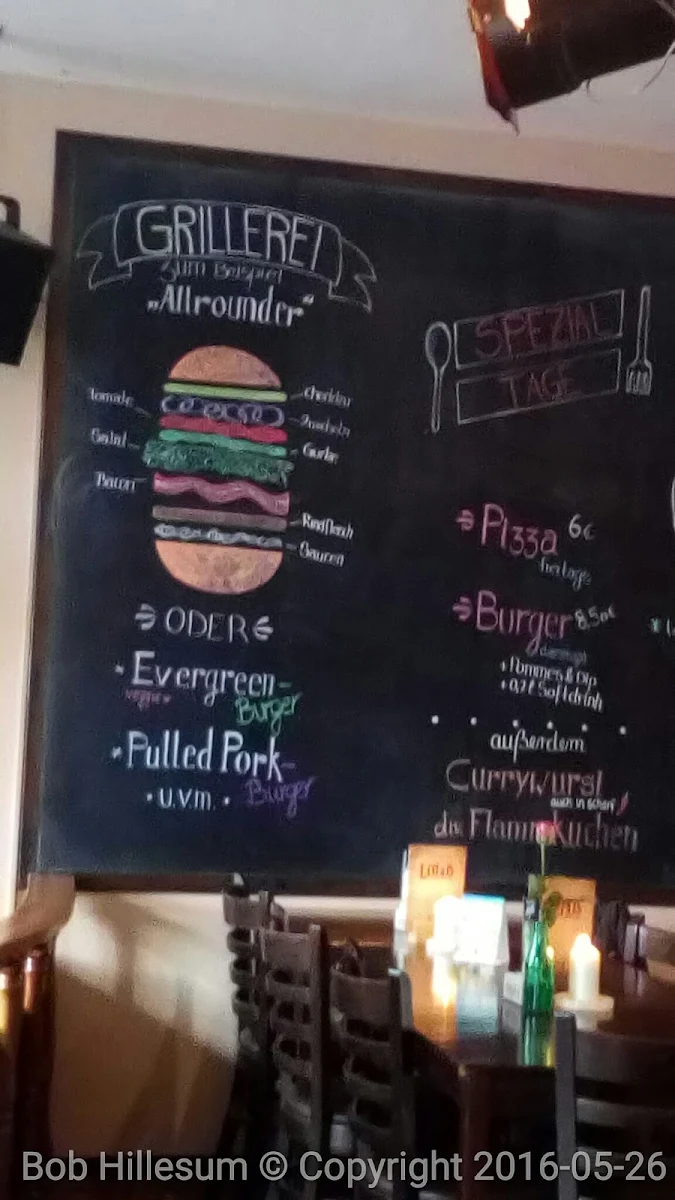 GRILLEREI
zum Beispiel
„Allrounder“
Tomate
Salat
Bacon
Cheddar
Zwiebeln
Gurke
Rindfleisch
Saucen
ODER
Evergreen-
veggie
Burger
Pulled Pork-
Burger
• u.v.m. •
SPEZIAL
TAGE
Pizza 6€
freitags
Burger 8,50€
dienstags
+ Pommes & Dip
+ 0,2l Softdrink
außerdem
Currywurst
auch in scharf
div. Flammkuchen
Bob Hillesum © Copyright 2016-05-26